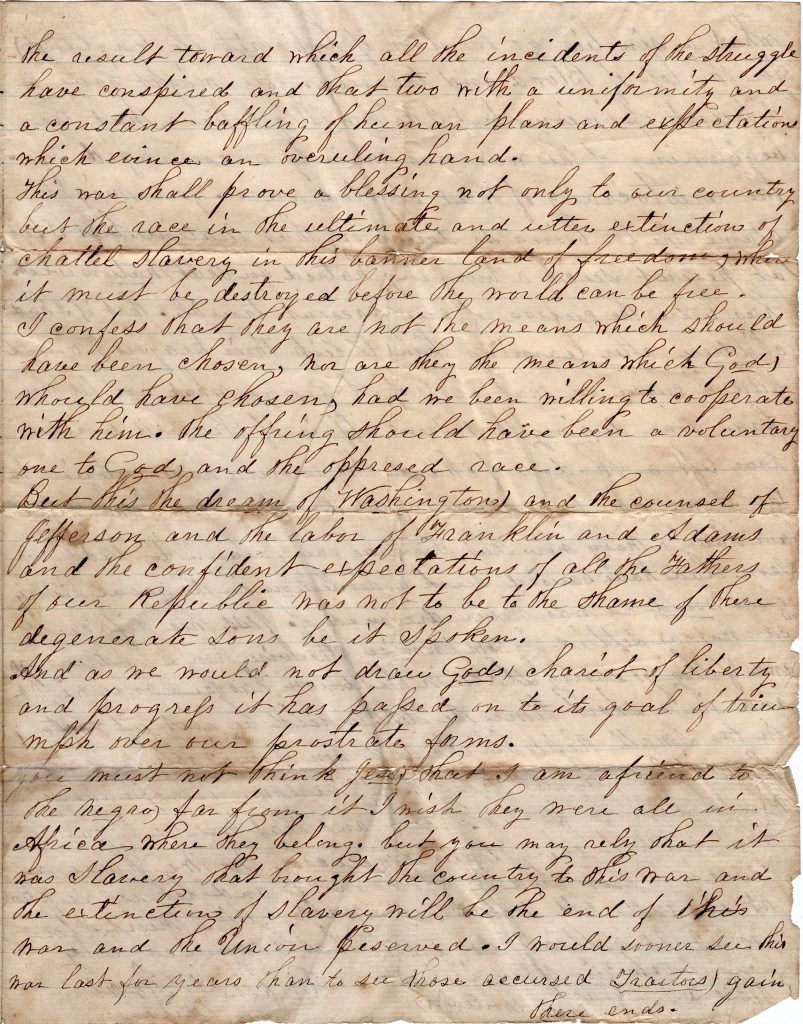 the result toward which all the incidents of the struggle
have conspired and that two with a uniformity and
a constant baffling of human plans and expectations
which evince an overuling hand.
This war shall prove a blessing not only to our country
but the race in the ultimate and utter extinctions of
chattel slavery in this banner land of freedom, where
it must be destroyed before the world can be free.
I confess that they are not the means which should
have been chosen, nor are they the means which God)
whould have chosen, had we been willing to cooperate
with him. the offring should have been a voluntary
one to God, and the oppresed race.
But this the dream of Washington) and the counsel of
Jefferson and the labor of Franklin and Adams
and the confident expectations of all the Fathers
of our Republic was not to be to the shame of there
degenerate sons be it spoken.
And as we would not draw Gods) chariot of liberty
and progress it has passed on to its goal of triu-
mph over our prostrate forms.
you must not think that I am afriend to
the negro, far from it I wish they were all in
Africa where they belong. but you may rely that it
was Slavery that brought the country to this war and
the extinctions of slavery will be the end of this
war and the Union Peserved. I would sooner see this
war last for years than to see those accursed Traitors) gain
there ends.